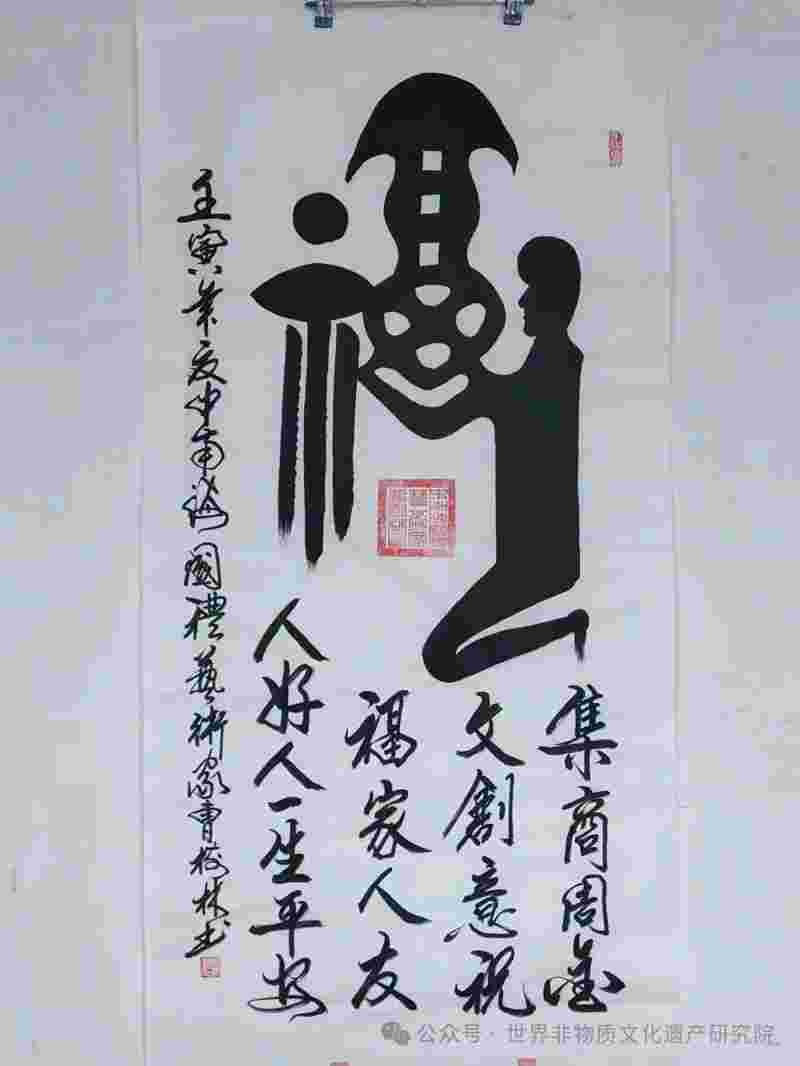 福
集商周金
文創意祝
福家人友
人好人一生平安
壬寅中南海國禮藝術家曹校林书
公众号·世界非物质文化遗产研究院